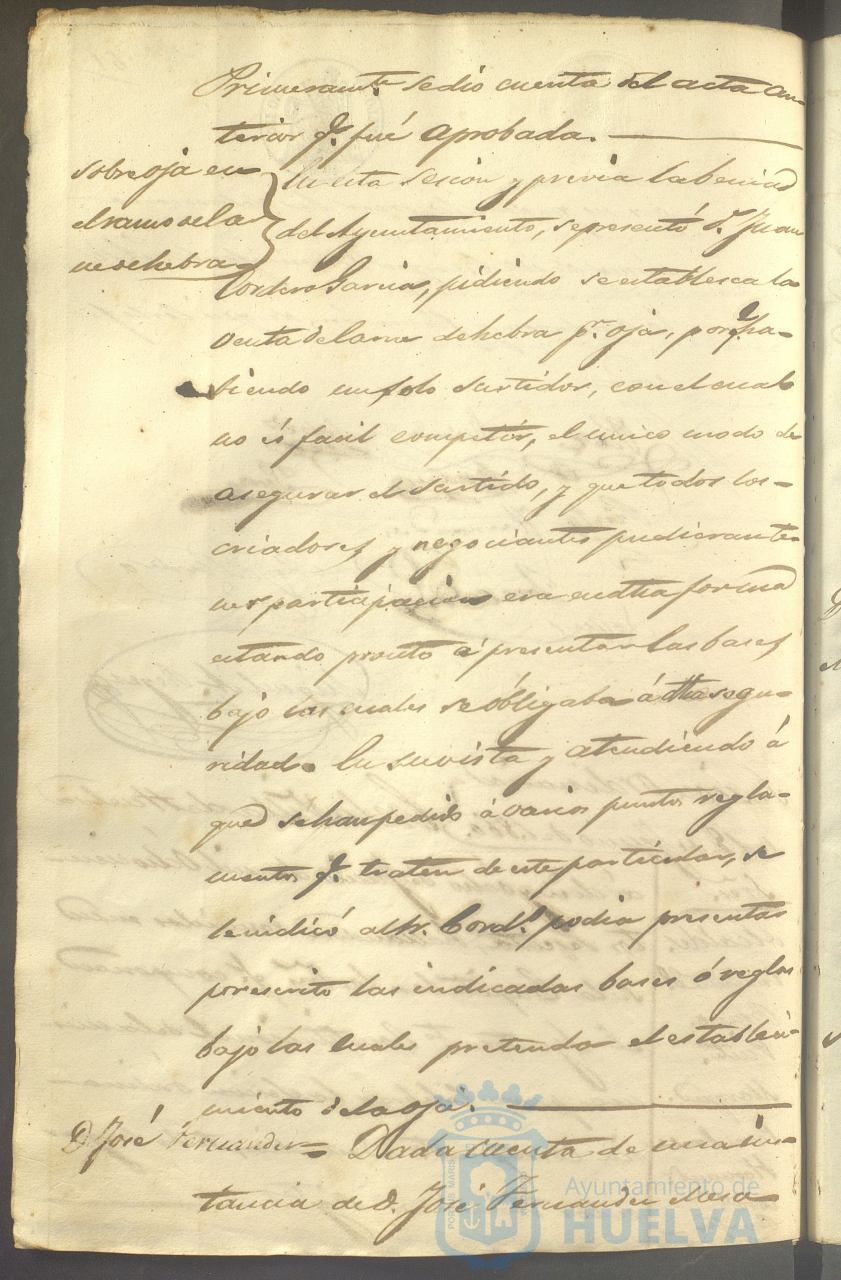 Primeramte. se dió cuenta del acta an-
terior q. fué aprobada.
sobre oja en
el ramo de la
ne de hebra
En esta sesion y previa la benia
del Ayuntamiento, se presentó D. Juan
Cordero Garcia, pidiendo se establesca la
venta de carne de hebra pr. oja, porq. ha-
biendo un solo surtidor, con el cual
no és facil competir, el unico modo de
asegurar el surtido, y que todos los-
criadores y negociantes pudieran te-
ner participacion era en dha forma
estando pronto á presentar las bases
bajo las cuales se obligaba á dha segu-
ridad. En su vista y atendiendo á
que se han pedido á varios puntos regla-
mentos q. traten de este particular, se
le indicó al Sr. Cordo. podia presentar
por escrito las indicadas bases ó reglas
bajo las cuales pretenda el estableci-
miento de la oja.
D. José Fernandez = Dada cuenta de una ins-
tancia de D. José Fernandez
Ayuntamiento de
HUELVA